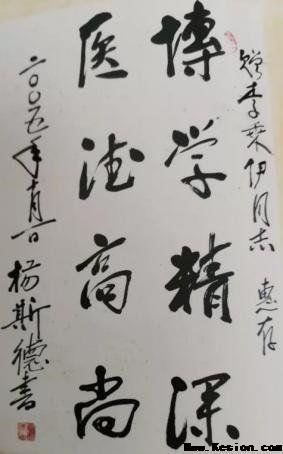 赠李秉伊同志 惠存
博学精深
医德高尚
二〇〇五年十月一日 杨斯德书
Www.Kesion.com